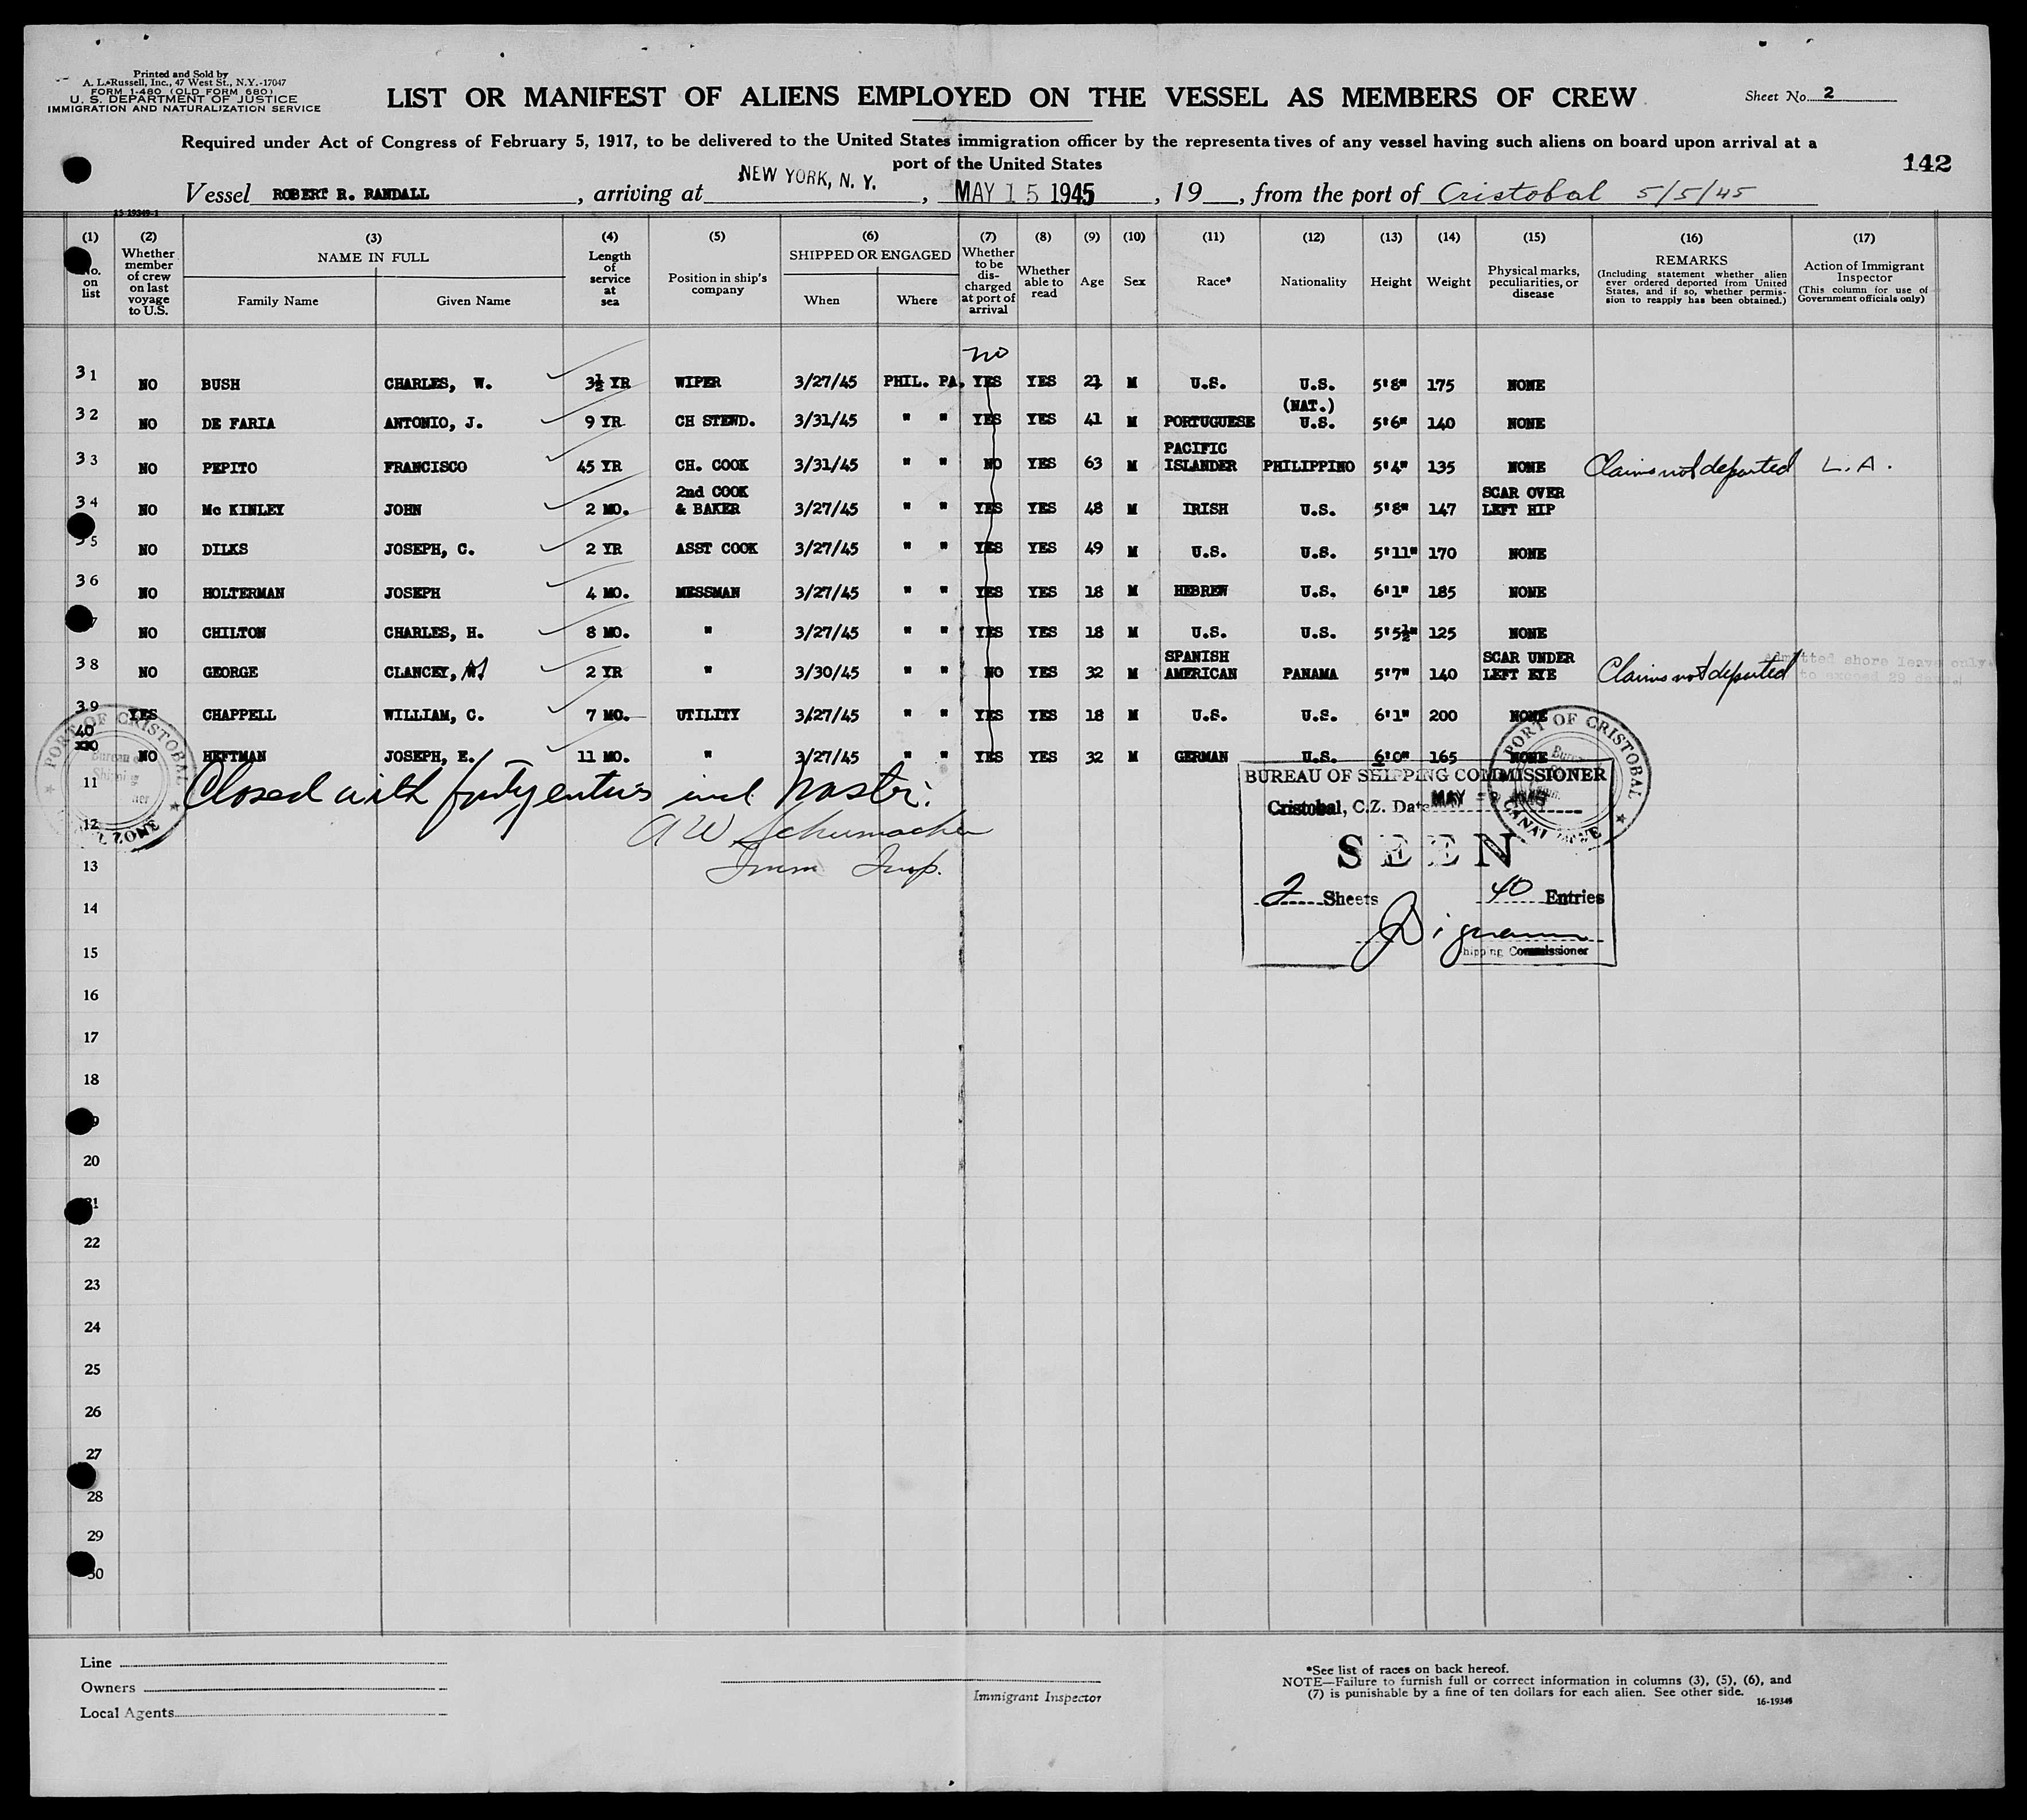 Printed and Sold by
A. L. Russell, Inc., 47 West St., N.Y.-17047
FORM 1-480 (OLD FORM 680)
U. S. DEPARTMENT OF JUSTICE
IMMIGRATION AND NATURALIZATION SERVICE
LIST OR MANIFEST OF ALIENS EMPLOYED ON THE VESSEL AS MEMBERS OF CREW
Sheet No. 2
Required under Act of Congress of February 5, 1917, to be delivered to the United States immigration officer by the representatives of any vessel having such aliens on board upon arrival at a
port of the United States
142
Vessel ROBERT R. RANDALL, arriving at NEW YORK, N. Y., MAY 15 1945, 19__, from the port of Cristobal 5/5/45
(1) No. on list
(2) Whether member of crew on last voyage to U.S.
(3) NAME IN FULL Family Name Given Name
(4) Length of service at sea
(5) Position in ship's company
(6) SHIPPED OR ENGAGED When Where
(7) Whether to be discharged at port of arrival
(8) Whether able to read
(9) Age
(10) Sex
(11) Race*
(12) Nationality
(13) Height
(14) Weight
(15) Physical marks, peculiarities, or disease
(16) REMARKS (Including statement whether alien ever ordered deported from United States, and if so, whether permission to reapply has been obtained.)
(17) Action of Immigrant Inspector (This column for use of Government officials only)
no
31 NO BUSH CHARLES, W. 3½ YR WIPER 3/27/45 PHIL. PA. YES YES 21 M U.S. U.S. 5'8" 175 NONE
32 NO DE FARIA ANTONIO, J. 9 YR CH STEWD. 3/31/45 " " YES YES 41 M PORTUGUESE (NAT.) U.S. 5'6" 140 NONE
33 NO PEPITO FRANCISCO 45 YR CH. COOK 3/31/45 " " NO YES 63 M PACIFIC ISLANDER PHILIPPINO 5'4" 135 NONE Claims not deported L.A.
34 NO Mc KINLEY JOHN 2 MO. 2nd COOK & BAKER 3/27/45 " " YES YES 48 M IRISH U.S. 5'8" 147 SCAR OVER LEFT HIP
35 NO DILKS JOSEPH, C. 2 YR ASST COOK 3/27/45 " " YES YES 49 M U.S. U.S. 5'11" 170 NONE
36 NO HOLTERMAN JOSEPH 4 MO. MESSMAN 3/27/45 " " YES YES 18 M HEBREW U.S. 6'1" 185 NONE
7 NO CHILTON CHARLES, H. 8 MO. " 3/27/45 " " YES YES 18 M U.S. U.S. 5'5½" 125 NONE
38 NO GEORGE CLANCEY, 2 YR " 3/30/45 " " NO YES 32 M SPANISH AMERICAN PANAMA 5'7" 140 SCAR UNDER LEFT EYE Claims not deported Admitted shore leave only to exceed 29 days
39 YES CHAPPELL WILLIAM, C. 7 MO. UTILITY 3/27/45 " " YES YES 18 M U.S. U.S. 6'1" 200 NONE
40 NO HEFTMAN JOSEPH, E. 11 MO. " 3/27/45 " " YES YES 32 M GERMAN U.S. 6'0" 165 NONE
PORT OF CRISTOBAL
PORT OF CRISTOBAL CANAL ZONE
Closed with forty entries incl Master.
A W Schumacher
Imm Insp.
BUREAU OF SHIPPING COMMISSIONER
Cristobal, C.Z. Date MAY
SEEN
2 Sheets 40 Entries
Shipping Commissioner
11
12
13
14
15
16
17
18
9
20
21
22
23
24
25
26
27
28
29
30
Line
Owners
Local Agents
Immigrant Inspector
*See list of races on back hereof.
NOTE—Failure to furnish full or correct information in columns (3), (5), (6), and
(7) is punishable by a fine of ten dollars for each alien. See other side.
16-19349